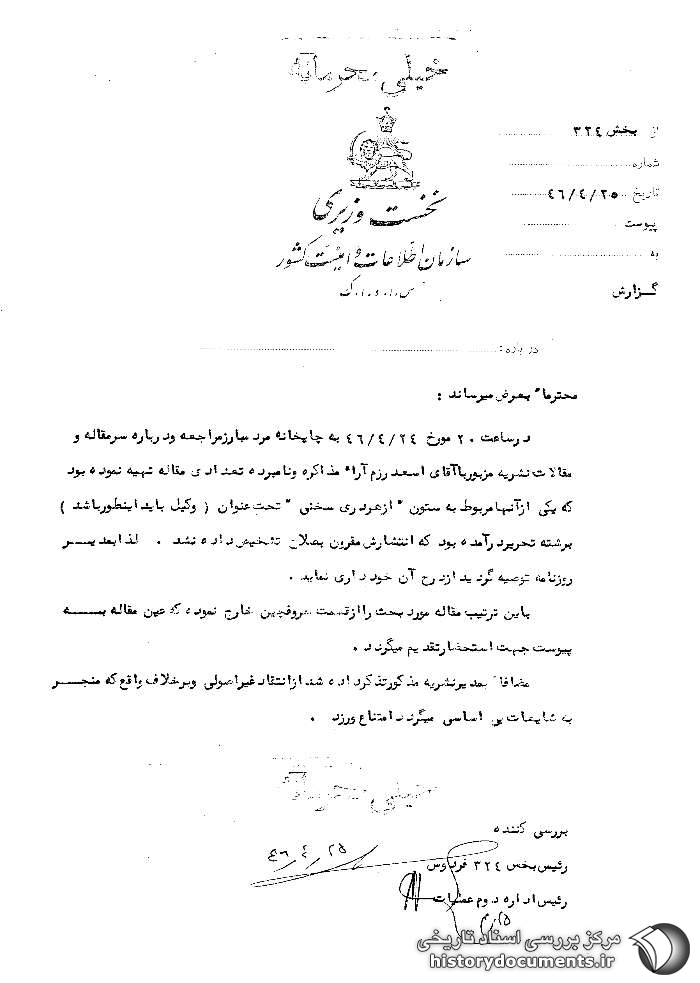 خیلی محرمانه
از بخش ۳۲۴
شماره
تاریخ ۴۶/۴/۲۵
پیوست
به
گزارش
نخست وزیری
سازمان اطلاعات و امنیت کشور
س.ا.و.ا.ک
درباره:
محترماً بعرض میرساند :
در ساعت ۲۰ مورخ ۴۶/۴/۲۴ به چاپخانه مرد مبارز مراجعه و درباره سرمقاله و
مقالات نشریه مزبور با آقای اسعد رزم آرا مذاکره و نامبرده تعدادی مقاله تهیه نموده بود
که یکی از آنها مربوط به ستون " از هر دری سخنی " تحت عنوان ( وکیل باید اینطور باشد )
برشته تحریر درآمده بود که انتشارش مقرون بصلاح تشخیص داده نشد . لذا بمدیر
روزنامه توصیه گردید از درج آن خودداری نماید .
باین ترتیب مقاله مورد بحث را از قسمت حروفچین خارج نموده که عین مقاله به
پیوست جهت استحضار تقدیم میگردد .
مضافاً بمدیر نشریه مذکور تذکر داده شد از انتقاد غیر اصولی و برخلاف واقع که منجر
به شایعات بی اساسی میگردد امتناع ورزد .
خیلی محرمانه
بررسی کننده
رئیس بخش ۳۲۴ فردوس
۴۶/۴/۲۵
رئیس اداره دوم عملیات
مرکز بررسی اسناد تاریخی
historydocuments.ir